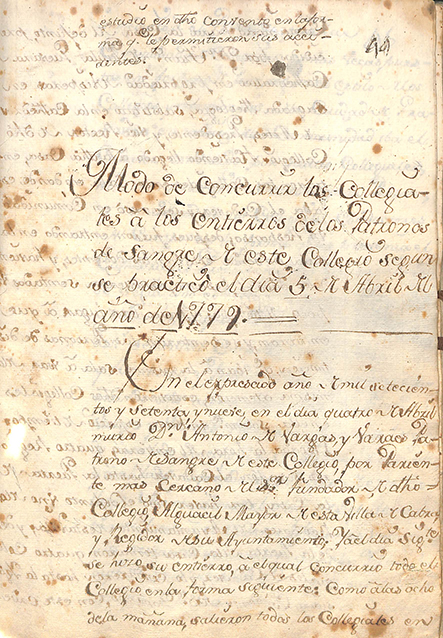 estudio en dho Convento, en la for-
ma q. le permitieron sus acci-
dentes.
44
Modo de Concurrir los Collegia-
les à los entierros de los Patronos
de Sangre de este Collegio segun
se practicò el dia 5 de Abril del
año de 1779.
En el expresado año de mil setecien-
tos y setenta y nueve, en el dia quatro de Abril
muriò Dn. Antonio de Vargas, y Vargas Pa-
trono de Sangre de este Collegio, por Parien-
te mas Cercano del Sor. fundador de dho
Collegio, Alguacil Mayor de esta Villa de Cabra,
y Regidor de su Ayuntamiento, y al dia Sigte.
se hizo su entierro, à el qual concurriò todo el
Collegio en la forma siguiente. Como à las ocho
de la mañana, salieron todos los Collegiales en